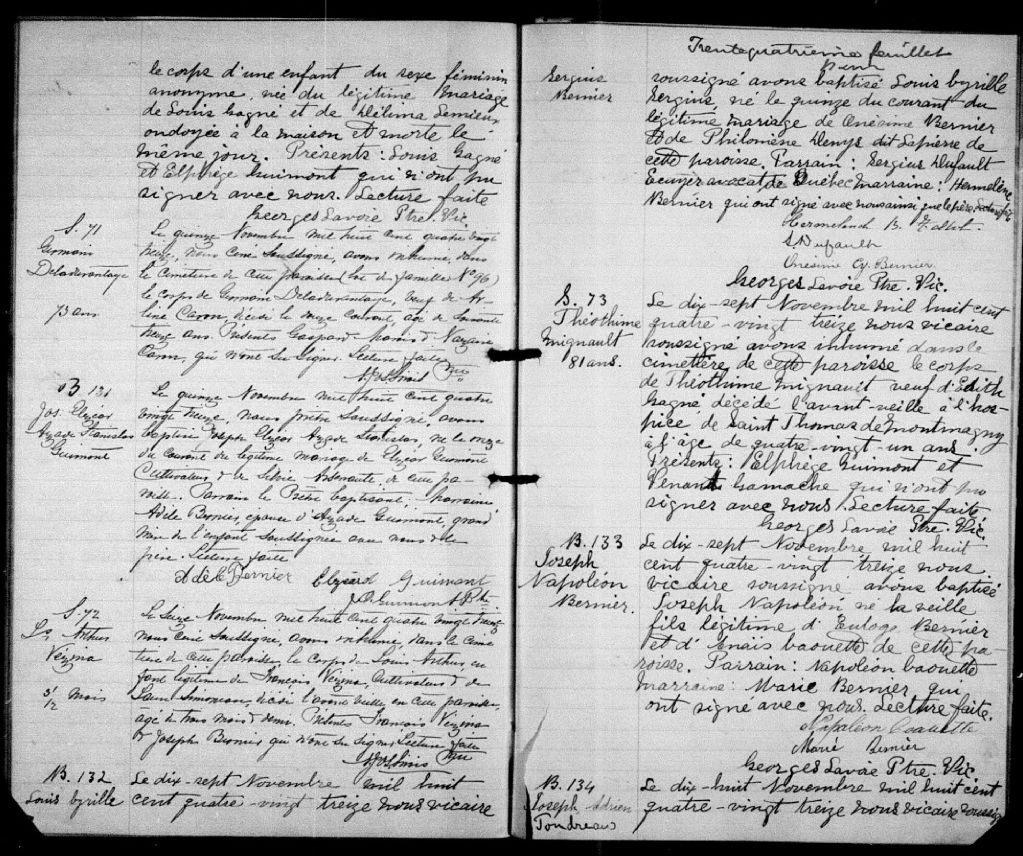 le corps d'une enfant du sexe féminin
anonyme, née du légitime mariage
de Louis Gagné et de Délima Lemieux
ondoyée à la maison et morte le
même jour. Présents: Louis Gagné
et Elphège Guimont qui n'ont pu
signer avec nous. Lecture faite
Georges Lavoie Ptre. Vic.
S. 71
Germain
Deladurantage
73 ans
Le quinze Novembre mil huit cent quatre vingt
treize, nous Curé soussigné, avons inhumé, dans
le Cimetière de cette paroisse (lot de famille No 96)
le corps de Germain Deladurantage, veuf de
Caron, décédé le onze courant, agé de soixante
treize ans. Présents Gaspard Morin & Nazaire
Caron, qui n'ont su signer. Lecture faite
B 131
Jos. Elzéar
Azade Stanislas
Guimont
Le quinze Novembre mil huit cent quatre
vingt treize, nous prêtre soussigné, avons
baptisé Joseph Elzéar Azade Stanislas, né le onze
du courant du légitime mariage de Elzéar Guimont
Cultivateur & de de cette pa-
roisse. Parrain le Prêtre baptisant, marraine
Adèle Bernier, épouse d'Azade Guimont, grand
mère de l'enfant soussignée avec nous & le
père. Lecture faite
Adèle Bernier Elzéard Guimont
S. 72
Ls Arthur
Vézina
3 1/2 mois
Le seize Novembre mil huit cent quatre vingt treize
nous curé soussigné, avons inhumé, dans le cime
tière de cette paroisse, le corps de Louis Arthur, en
fant légitime de François Vézina, Cultivateur & de
Laure Simoneau, décédé l'avant veille en cette paroisse,
âgé de trois mois & demi. Présents François Vézina
& Joseph Bernier qui n'ont su signer. Lecture faite
B. 132
Louis Cyrille
Le dix-sept Novembre mil huit
cent quatre-vingt treize nous vicaire
Trentequatrieme feuillet
Sergius
Bernier
soussigné avons baptisé Louis Cyrille
Sergius, né le quinze du courant du
légitime mariage de Onésime Bernier
et de Philomène Denys dit Lapierre de
cette paroisse. Parrain: Sergius Dufault
Ecuyer avocat de Québec marraine: Hermeline
Bernier qui ont signé avec nous ainsi que le père. Lecture faite
S. Dufault
Onésime Cy. Bernier
Georges Lavoie Ptre. Vic.
S. 73
Théothime
Mignault
81 ans.
Le dix-sept Novembre mil huit cent
quatre-vingt treize nous vicaire
soussigné avons inhumé dans le
cimetière de cette paroisse le corps
de Théothime Mignault veuf d'Edith
Gagné décédé l'avant-veille à l'hos-
pice de Saint Thomas de Montmagny
à l'âge de quatre-vingt-un ans.
Présents: Elphège Guimont et
Venant Gamache qui n'ont pu
signer avec nous. Lecture faite
Georges Lavoie Ptre. Vic.
B. 133
Joseph
Napoléon
Bernier.
Le dix-sept Novembre mil huit
cent quatre-vingt treize nous
vicaire soussigné avons baptisé
Joseph Napoléon né la veille
fils légitime d'Euloge Bernier
et d'Anaïs Caouette de cette pa-
roisse. Parrain: Napoléon Caouette
Marraine: Marie Bernier qui
ont signé avec nous. Lecture faite.
Napoléon Caouette
Marie Bernier
Georges Lavoie Ptre. Vic.
B. 134
Joseph Adrien
Tondreau
Le dix-huit Novembre mil huit cent
quatre-vingt treize nous vicaire soussig